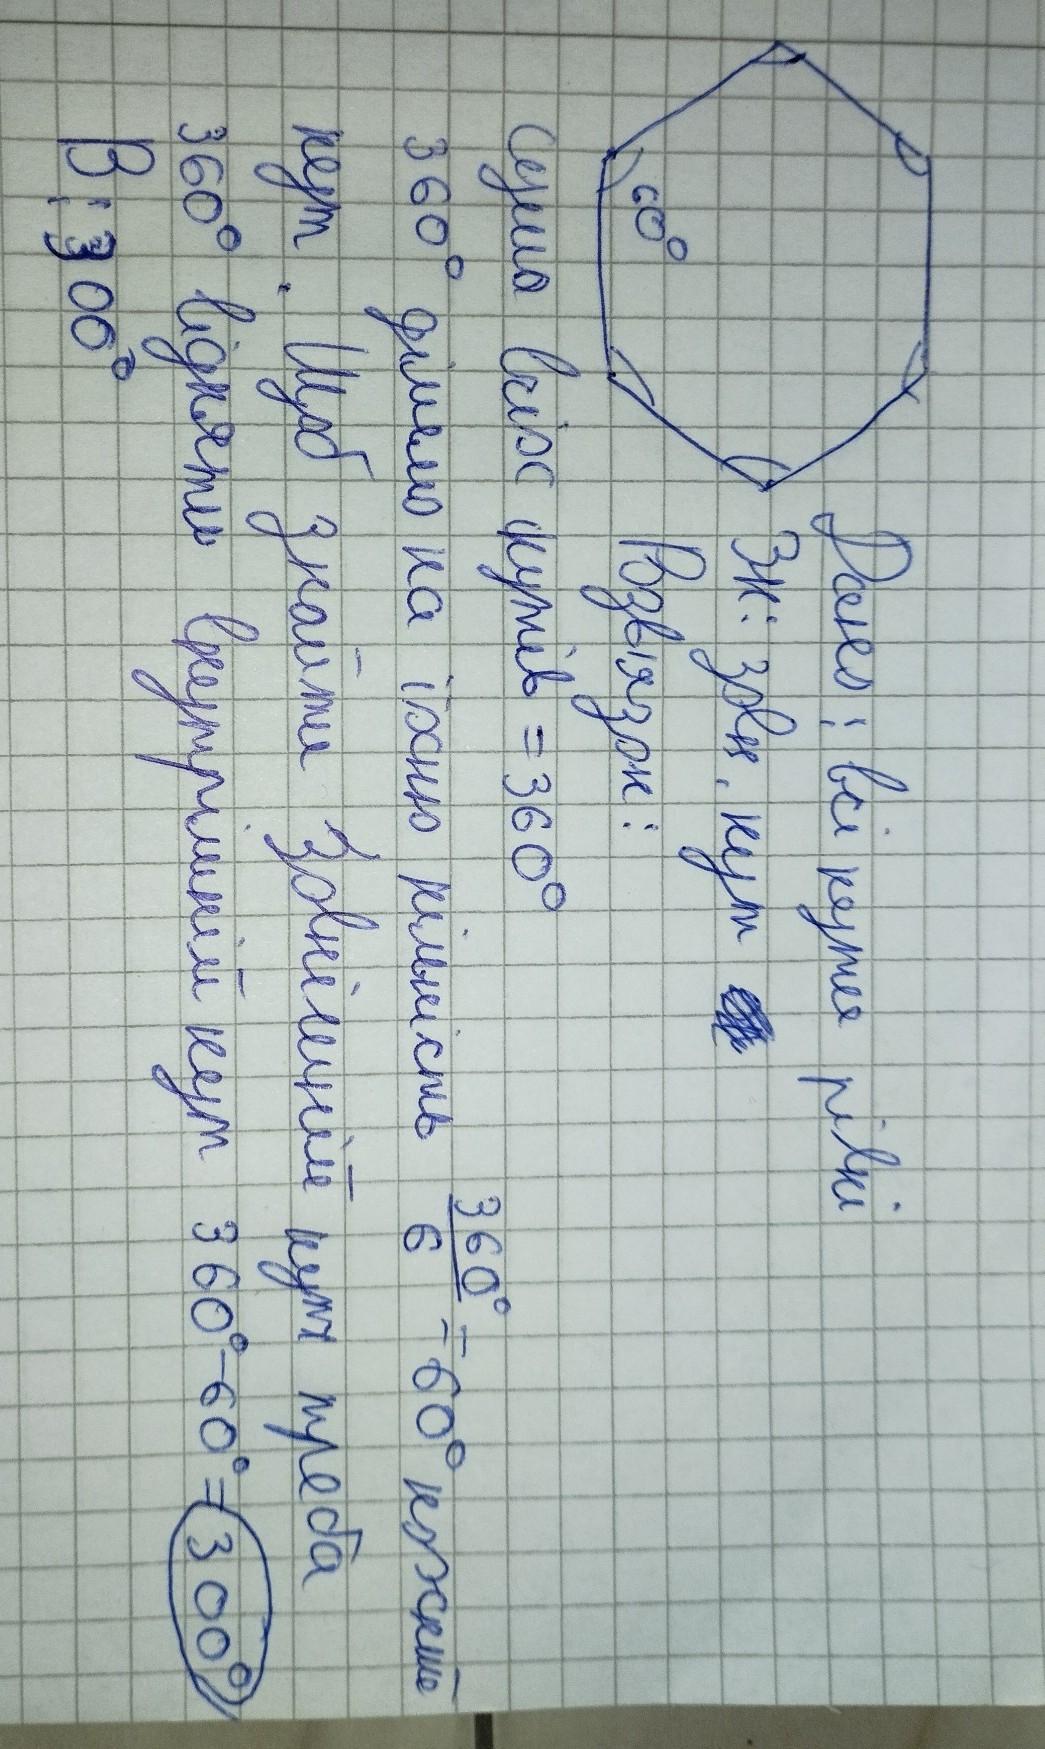 60°
Дано: всі кути рівні
Зн: зовн. кут
Розвязок:
Сума всіх кутів = 360°
360° ділимо на їхню кількість 360°/6 = 60° кожний
кут. Щоб знайти Зовнішній кут треба
360° відняти внутрішній кут 360° - 60° = 300°
В: 300°